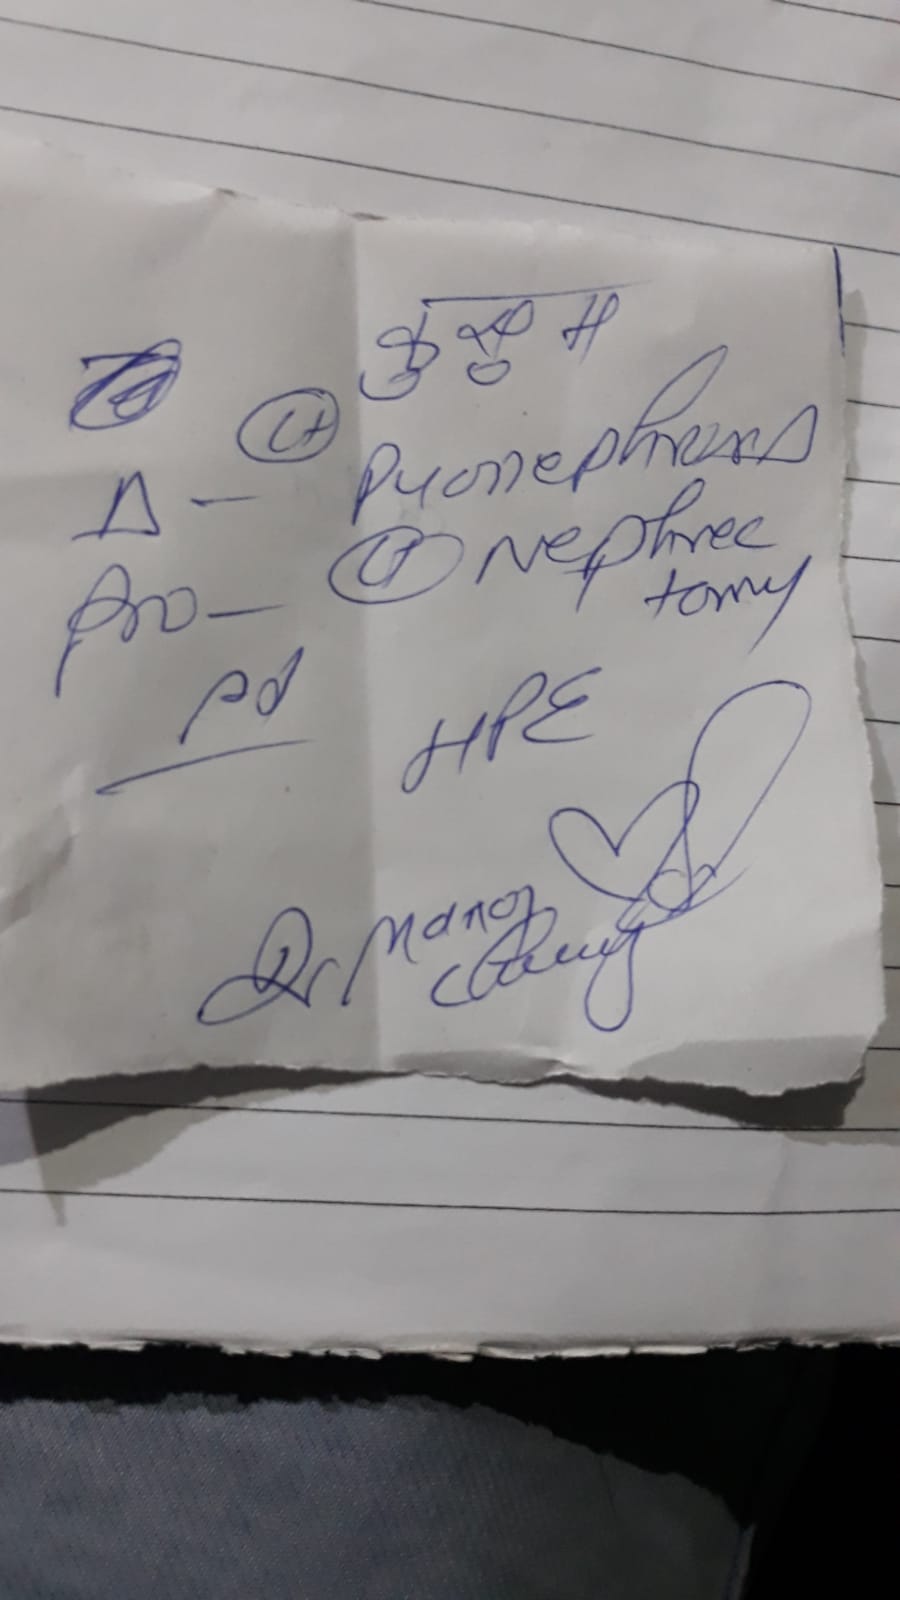 कुसुम
Lt
Δ - Pyonephrosis
Pro - Lt Nephrec
tomy
Pd HPE
Dr Manoj